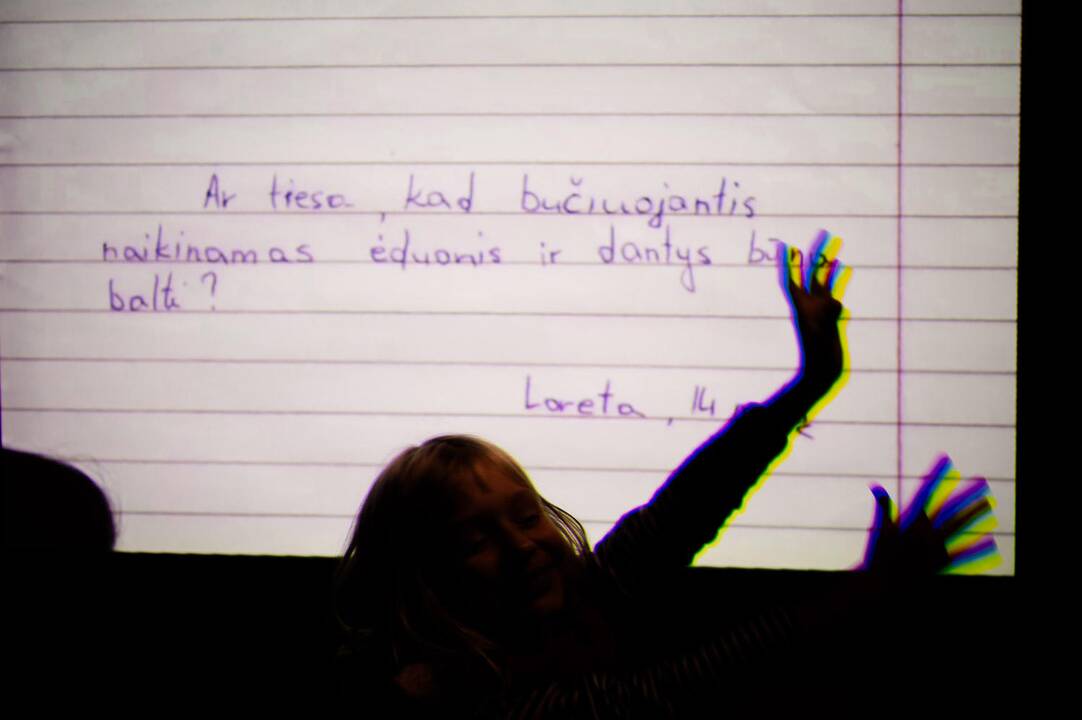 Ar tiesa, kad bučiuojantis
naikinamas ėduonis ir dantys būna
balti?
Loreta, 14